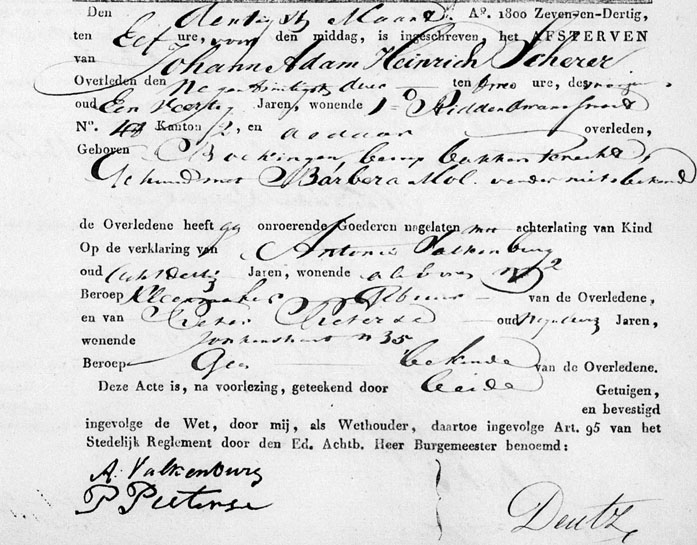 Den dertigste Maart Aº. 1800 Zeven-en-Dertig,
ten Elf ure, voor den middag, is ingeschreven, het AFSTERVEN
van Johann Adam Heinrich Scherer
Overleden den Negen en twintigste dezer ten twee ure, des
oud Een Veertig Jaren, wonende Ridderdwarsstraat
Nº. 48 Kanton 2, en aldaar overleden,
Geboren Bockingen, beroep bakkersknecht,
Gehuwd met Barbera Mol. verder niets bekend
de Overledene heeft gg onroerende Goederen nagelaten met achterlating van Kind
Op de verklaring van Antonie Valkenburg
oud Acht Dertig Jaren, wonende als boven Nº 2
Beroep Kleermaker Gebuur van de Overledene,
en van Pieter Pieterse oud Jaren,
wonende Jonkerstraat n 35
Beroep Gg bekende van de Overledene.
Deze Acte is, na voorlezing, geteekend door beide Getuigen,
en bevestigd
ingevolge de Wet, door mij, als Wethouder, daartoe ingevolge Art. 95 van het
Stedelijk Reglement door den Ed. Achtb. Heer Burgemeester benoemd:
A. Valkenburg
P Pieterse
Deutz